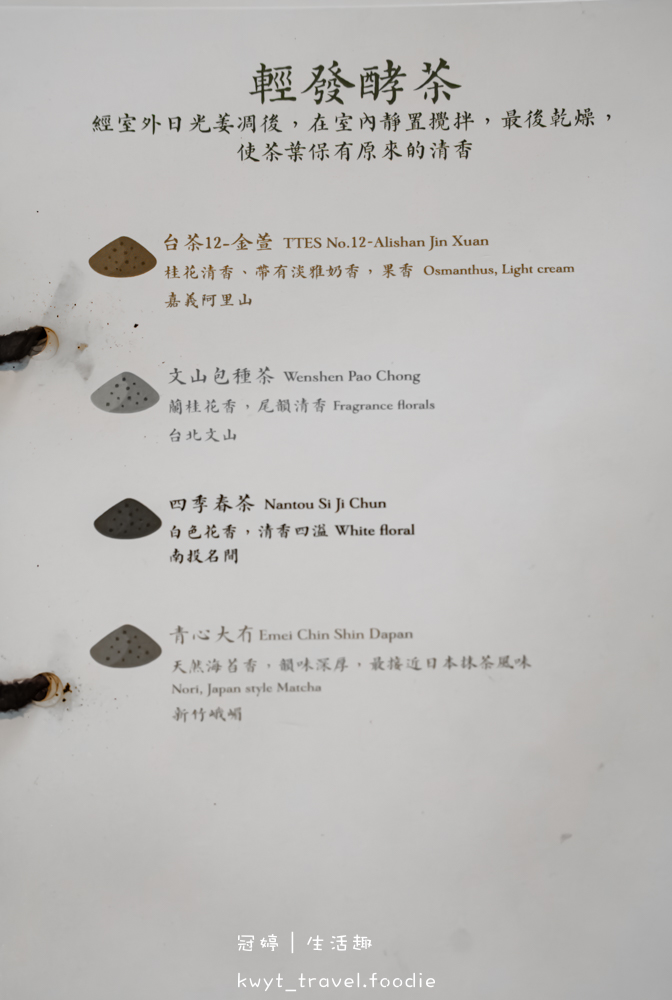 輕發酵茶
經室外日光姜凋後，在室內靜置攪拌，最後乾燥，
使茶葉保有原來的清香
台茶12-金萱 TTES No.12-Alishan Jin Xuan
桂花清香、帶有淡雅奶香，果香 Osmanthus, Light cream
嘉義阿里山
文山包種茶 Wenshen Pao Chong
蘭桂花香，尾韻清香 Fragrance florals
台北文山
四季春茶 Nantou Si Ji Chun
白色花香，清香四溢 White floral
南投名間
青心大冇 Emei Chin Shin Dapan
天然海苔香，韻味深厚，最接近日本抹茶風味
Nori, Japan style Matcha
新竹峨嵋
冠婷｜生活趣
kwyt_travel.foodie